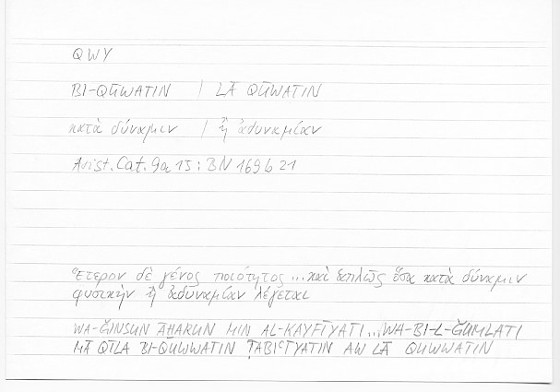 QWY
BI-QŪWATIN / LĀ QŪWATIN
κατὰ δύναμιν / ἢ ἀδυναμίαν
Arist. Cat. 9a 15 : BN 169b 21
Ἕτερον δὲ γένος ποιότητος ... καὶ ἁπλῶς ὅσα κατὰ δύναμιν
φυσικὴν ἢ ἀδυναμίαν λέγεται
WA-ǦINSUN ĀḪARUN MIN AL-KAYFĪYATI ... WA-BI-L-ǦUMLATI
MĀ QĪLA BI-QUWWATIN ṬABĪʿĪYATIN AW LĀ QUWWATIN